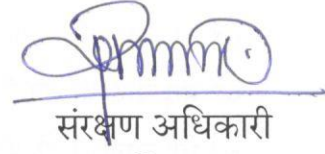 संरक्षण अधिकारी